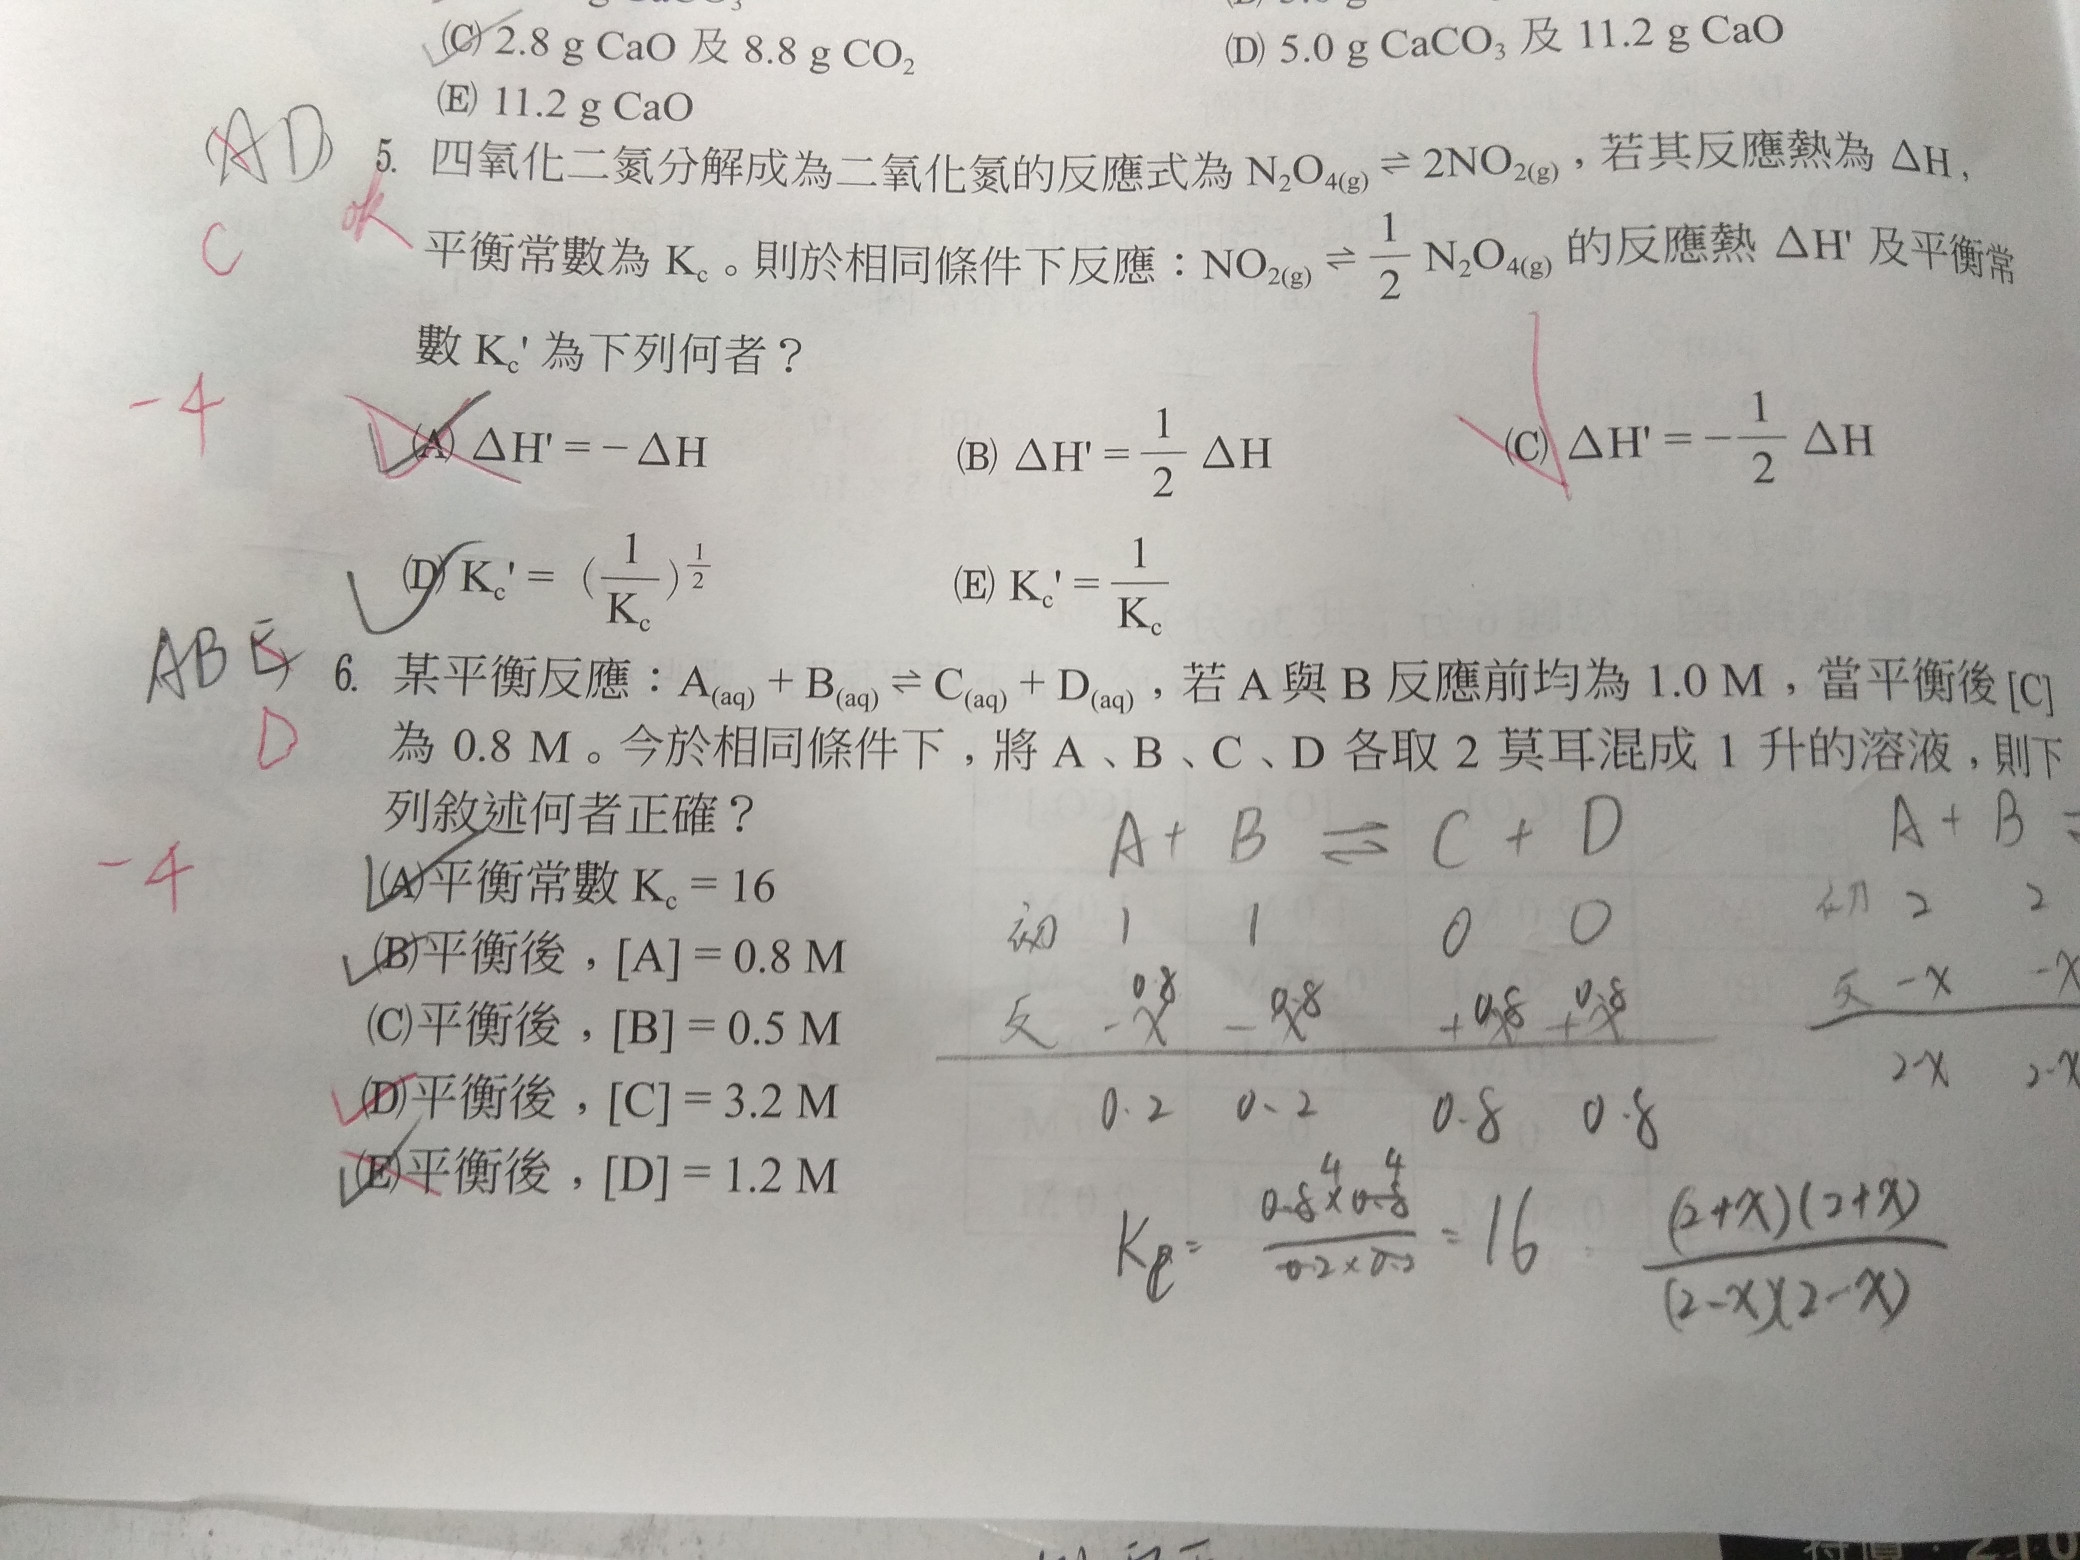 (C) 2.8 g CaO 及 8.8 g CO₂
(D) 5.0 g CaCO₃ 及 11.2 g CaO
(E) 11.2 g CaO
AD
C
ok
5. 四氧化二氮分解成為二氧化氮的反應式為 N₂O₄(g) ⇌ 2NO₂(g)，若其反應熱為 ΔH，
平衡常數為 Kc。則於相同條件下反應：NO₂(g) ⇌ 1/2 N₂O₄(g) 的反應熱 ΔH' 及平衡常
數 Kc' 為下列何者？
-4
(A) ΔH' = − ΔH
(B) ΔH' = 1/2 ΔH
(C) ΔH' = − 1/2 ΔH
(D) Kc' = (1/Kc)^1/2
(E) Kc' = 1/Kc
ABE
D
6. 某平衡反應：A(aq) + B(aq) ⇌ C(aq) + D(aq)，若 A 與 B 反應前均為 1.0 M，當平衡後 [C]
為 0.8 M。今於相同條件下，將 A、B、C、D 各取 2 莫耳混成 1 升的溶液，則下
列敘述何者正確？
-4
(A)平衡常數 Kc = 16
(B)平衡後，[A] = 0.8 M
(C)平衡後，[B] = 0.5 M
(D)平衡後，[C] = 3.2 M
(E)平衡後，[D] = 1.2 M
A + B ⇌ C + D
初 1 1 0 0
反 -0.8 -0.8 +0.8 +0.8
0.2 0.2 0.8 0.8
Kc = 0.8×0.8/0.2×0.2 = 16 = (2+x)(2+x)/(2-x)(2-x)
A + B ⇌
初 2 2
反 -x -x
2-x 2-x